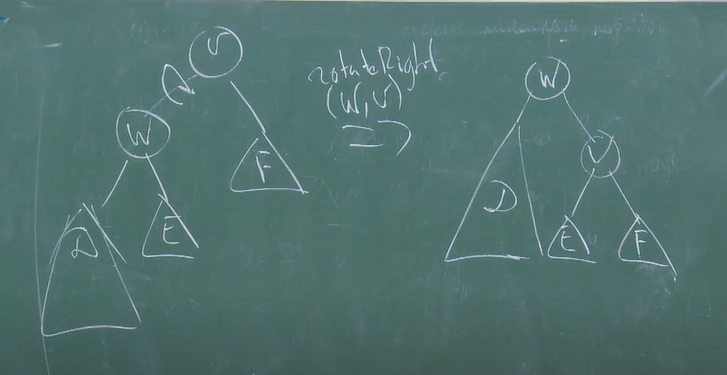 v
W
D
E
F
rotateRight
(W, v)
W
v
D
E
F